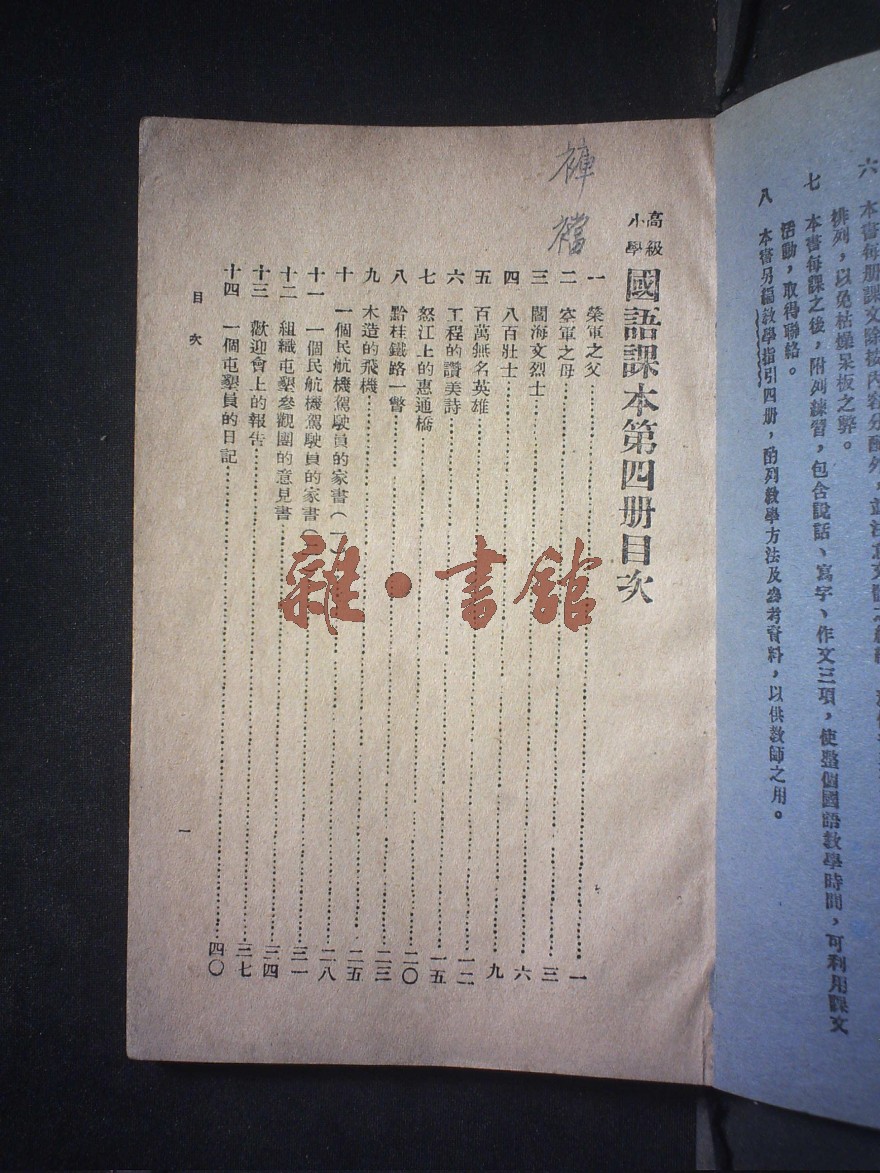 六 本書每册課文除按內容分配外，並注意文體之
排列，以免枯燥呆板之弊。
七 本書每課之後，附列練習，包含說話、寫字、作文三項，使整個國語教學時間，可利用課文
活動，取得聯絡。
八 本書另編教學指引四册，酌列教學方法及參考資料，以供教師之用。
褲襠
高級小學
國語課本第四册目次
一 榮軍之父 一
二 空軍之母 三
三 閻海文烈士 六
四 八百壯士 九
五 百萬無名英雄 一二
六 工程的讚美詩 一五
七 怒江上的惠通橋 二〇
八 黔桂鐵路一瞥 二三
九 木造的飛機 二五
十 一個民航機駕駛員的家書（一） 二八
十一 一個民航機駕駛員的家書 三一
十二 組織屯墾參觀團的意見書 三四
十三 歡迎會上的報告 三七
十四 一個屯墾員的日記 四〇
目次
一
雜·書館